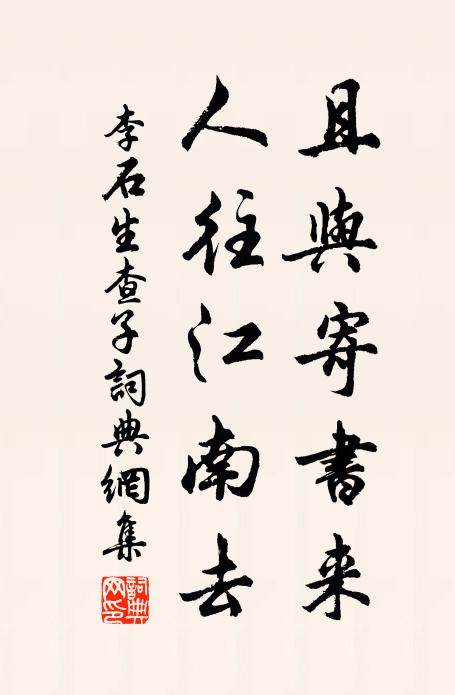 且與寄書来
人往江南去
李石生查子詞典網集
詞典网印